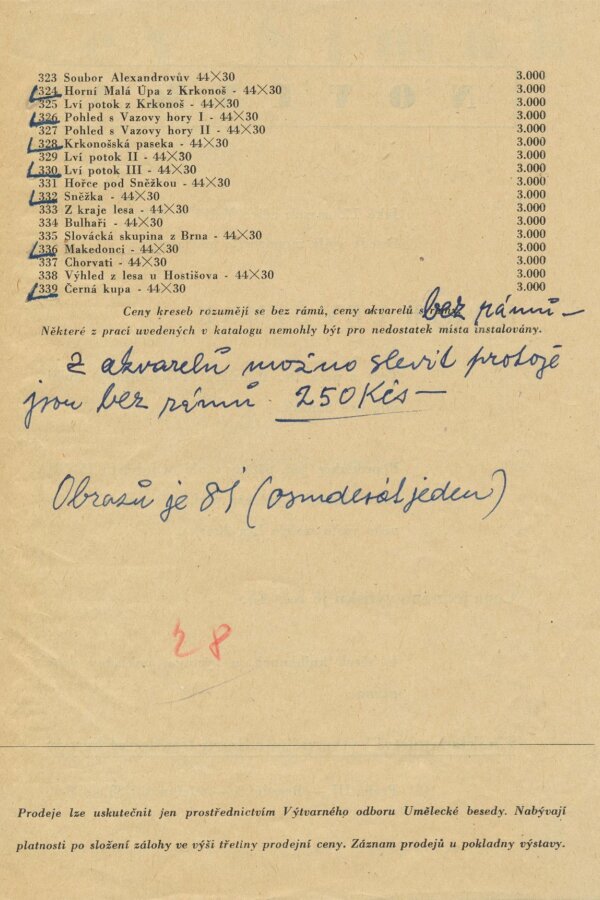 323 Soubor Alexandrovův 44×30 3.000
324 Horní Malá Úpa z Krkonoš - 44×30 3.000
325 Lví potok z Krkonoš - 44×30 3.000
326 Pohled s Vazovy hory I - 44×30 3.000
327 Pohled s Vazovy hory II - 44×30 3.000
328 Krkonošská paseka - 44×30 3.000
329 Lví potok II - 44×30 3.000
330 Lví potok III - 44×30 3.000
331 Hořce pod Sněžkou - 44×30 3.000
332 Sněžka - 44×30 3.000
333 Z kraje lesa - 44×30 3.000
334 Bulhaři - 44×30 3.000
335 Slovácká skupina z Brna - 44×30 3.000
336 Makedonci - 44×30 3.000
337 Chorvati - 44×30 3.000
338 Výhled z lesa u Hostišova - 44×30 3.000
339 Černá kupa - 44×30 3.000
Ceny kreseb rozumějí se bez rámů, ceny akvarelů bez rámů –
Některé z prací uvedených v katalogu nemohly být pro nedostatek místa instalovány.
Z akvarelů možno slevit protože
jsou bez rámů 250 Kčs –
Obrazů je 81 (osmdesátjeden)
28
Prodeje lze uskutečnit jen prostřednictvím Výtvarného odboru Umělecké besedy. Nabývají
platnosti po složení zálohy ve výši třetiny prodejní ceny. Záznam prodejů u pokladny výstavy.